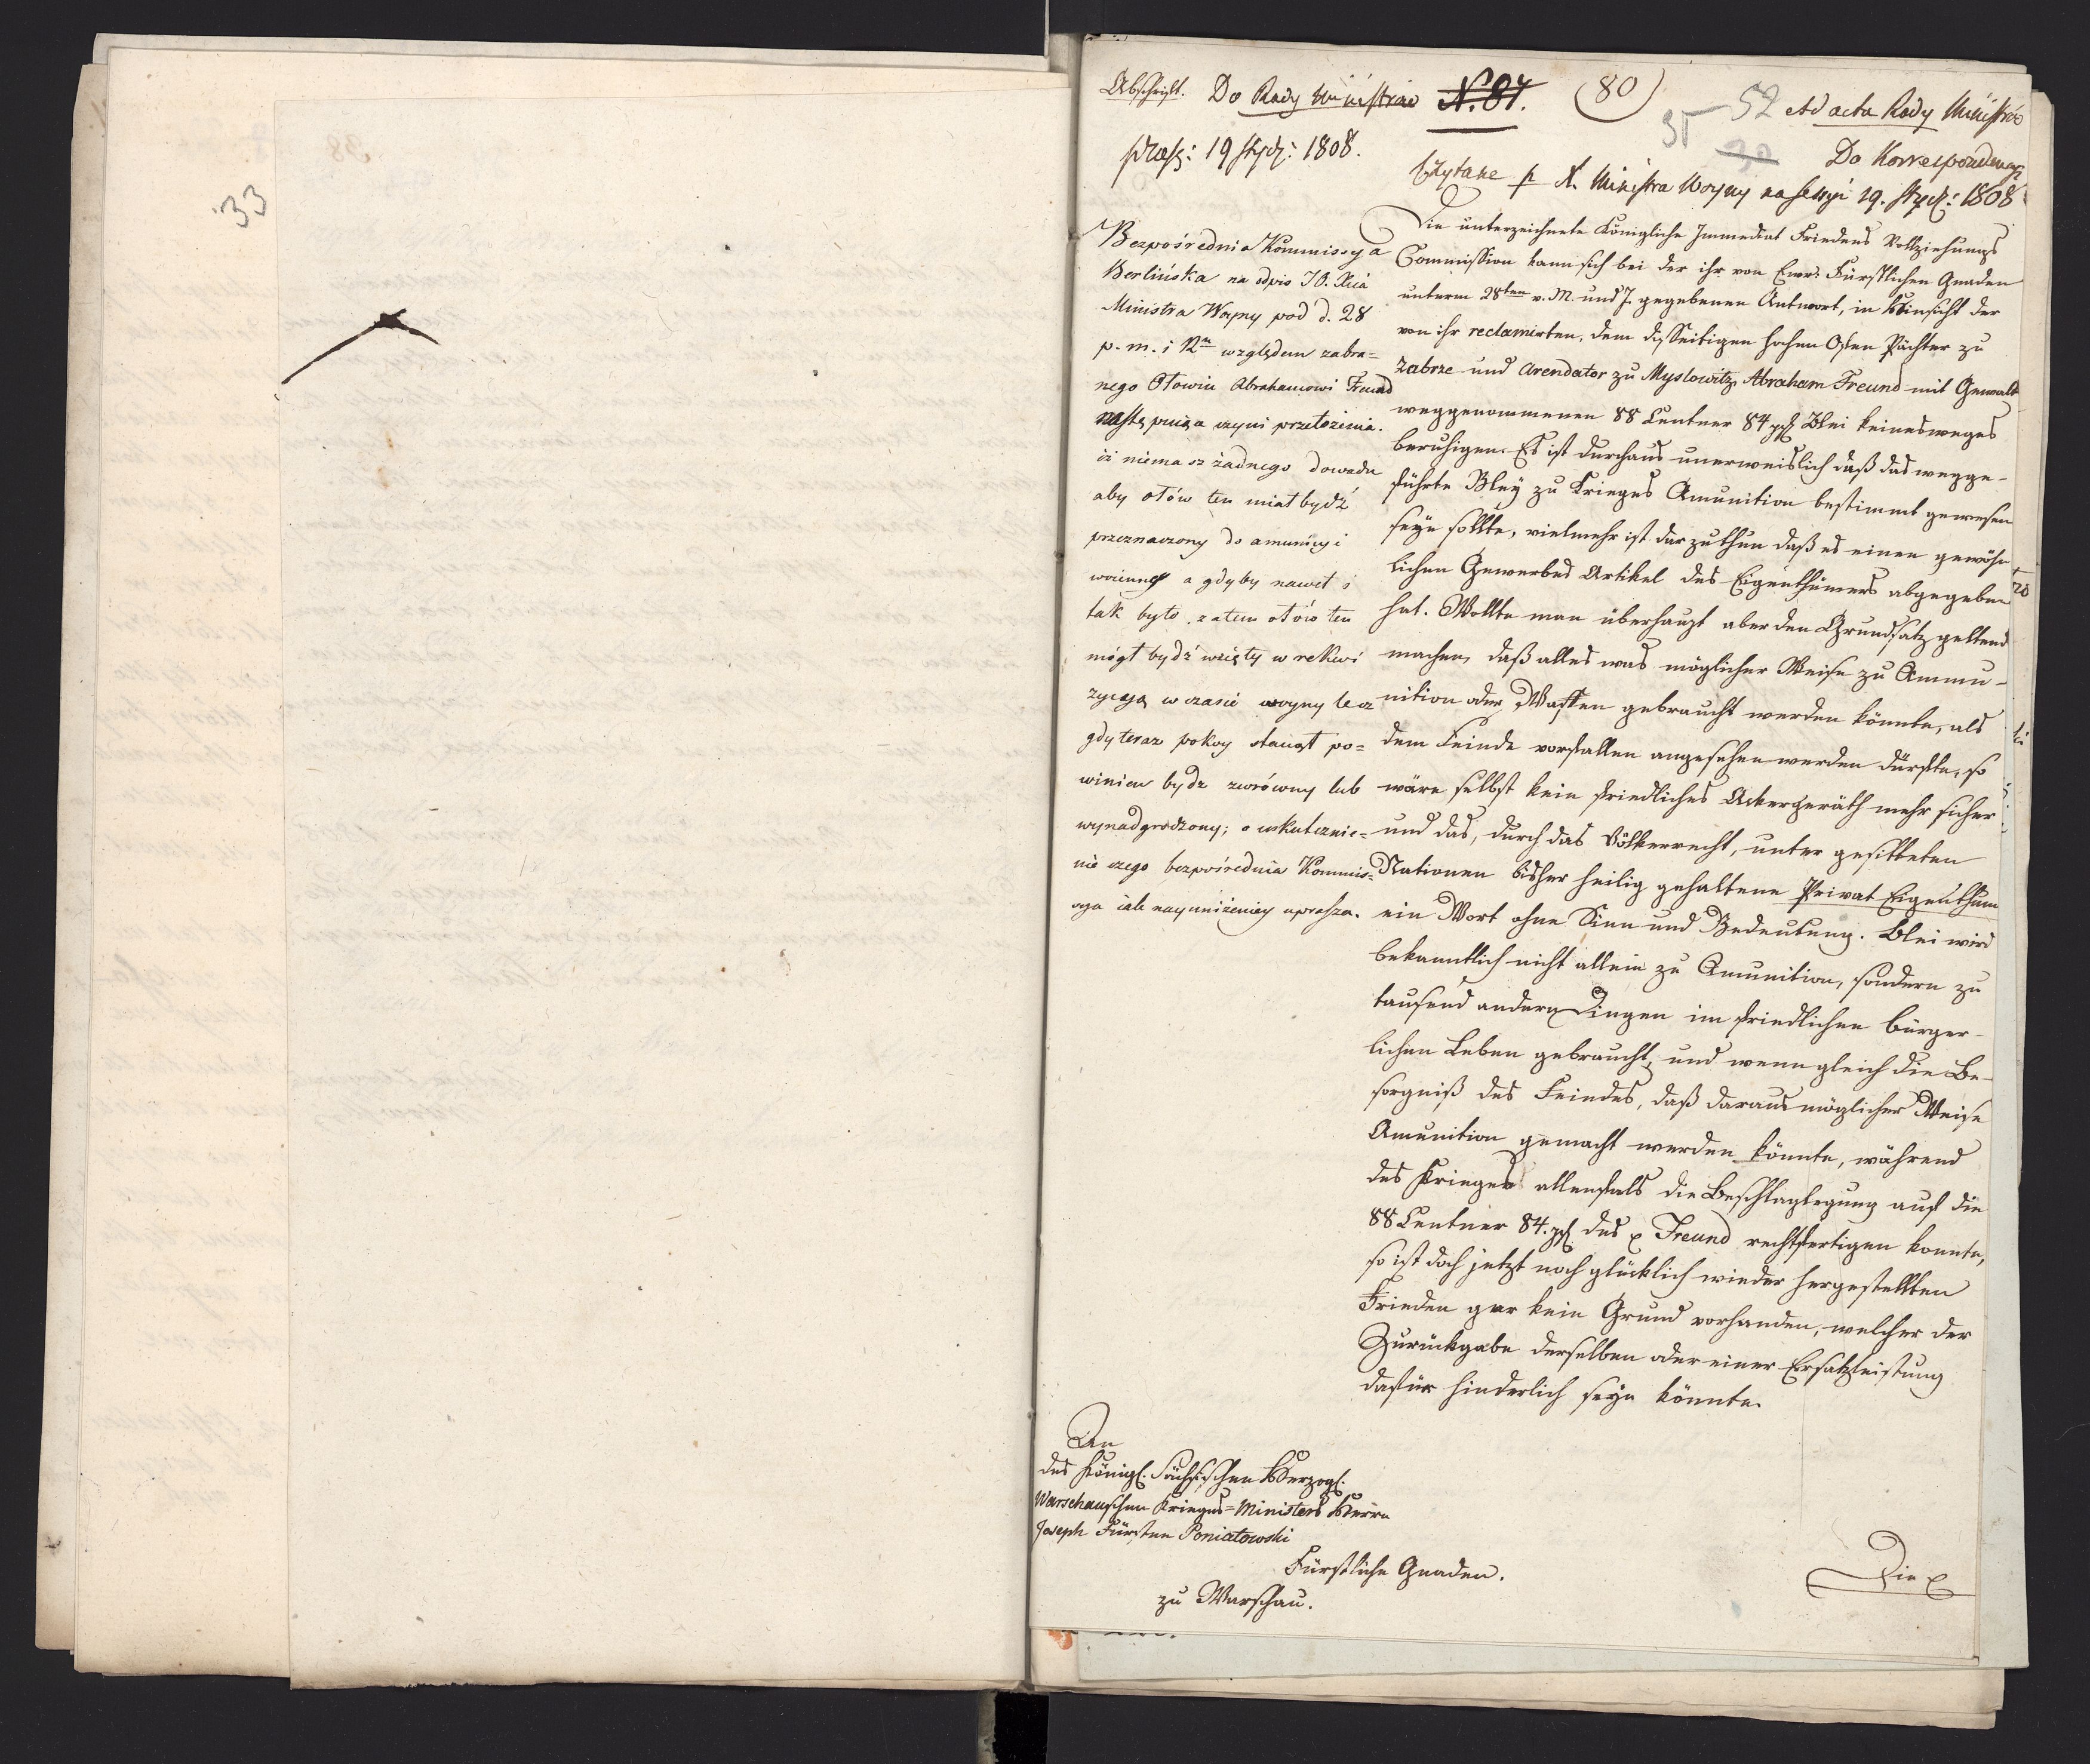 33
Abschrift. Do Rady Ministrów N. 87. (80)
35 52 Ad acta Rady Ministrów
20 Do Korrespondencyi
praes: 19 stycz: 1808.
Czytane p X. Ministra Woyny na Sessyi 19. stycz: 1808
Bezpośrednia Kommissya
Berlińska na odpis JO. Xcia
Ministra Woyny pod d. 28
p. m. i R. względem zabra=
nego Ołowiu Abrahamowi Freund
następuiąca czyni przełożenia.
iż niemasz żadnego dowodu
aby ołów ten miał bydź
przeznaczony do amunicyi
woienney a gdyby nawet i
tak było, zatem ołów ten
mógł bydź wzięty w rekwi
zycyą w czasie woyny lecz
gdy teraz pokoy stanął po=
winien bydz zwrócony lub
wynadgrodzony; o uskutecznie=
nie czego bezpośrednia Kommis=
sya iak nayuniżeniey uprasza.
Die unterzeichnete Königliche Immediat Friedens Vollziehungs
Commission kann sich bei der ihr von Ewr: Fürstlichen Gnaden
unterm 28ten v. M. und J. gegebenen Antwort, in Hinsicht der
von ihr reclamirten, dem disseitigen hohen Ofen Pächter zu
Zabrze und Arendator zu Myslowitz, Abraham Freund mit Gewalt
weggenommenen 88 Centner 84 Blei keinesweges
beruhigen. Es ist durchaus unerweislich daß das wegge-
führte Bley zu Krieges Amunition bestimmt gewesen
seyn sollte, vielmehr ist darzuthun daß es einen gewöhn
lichen Gewerbes Artikel des Eigenthümers abgegeben
hat. Wollte man überhaupt aber den Grundsatz geltend
machen, daß alles was möglicher Weise zu Ammu-
nition oder Waffen gebraucht werden könnte, als
dem Feinde verfallen angesehen werden dürfte, so
wäre selbst kein friedliches Ackergeräth mehr sicher
und das, durch das Völkerrecht, unter gesitteten
Nationen bisher heilig gehaltene Privat Eigenthum
ein Wort ohne Sinn und Bedeutung. Blei wird
bekanntlich nicht allein zu Amunition, sondern zu
tausend andern Dingen im friedlichen bürger-
lichen Leben gebraucht, und wenn gleich die Be-
sorgniß des Feindes, daß daraus möglicher Weise
Amunition gemacht werden könnte, während
des Krieges allenfals die Beschlaglegung auf die
88 Centner 84. des Freund rechtfertigen konnte,
so ist doch jetzt nach glücklich wieder hergestellten
Frieden gar kein Grund vorhanden, welcher der
Zurückgabe derselben oder einer Ersatzleistung
dafür hinderlich seyn könnte.
An
des Königl. Sächsischen Herzogl.
Warschauschen Krieges=Ministers Herrn
Joseph Fürsten Poniatowski
Fürstliche Gnaden.
zu Warschau.
Die